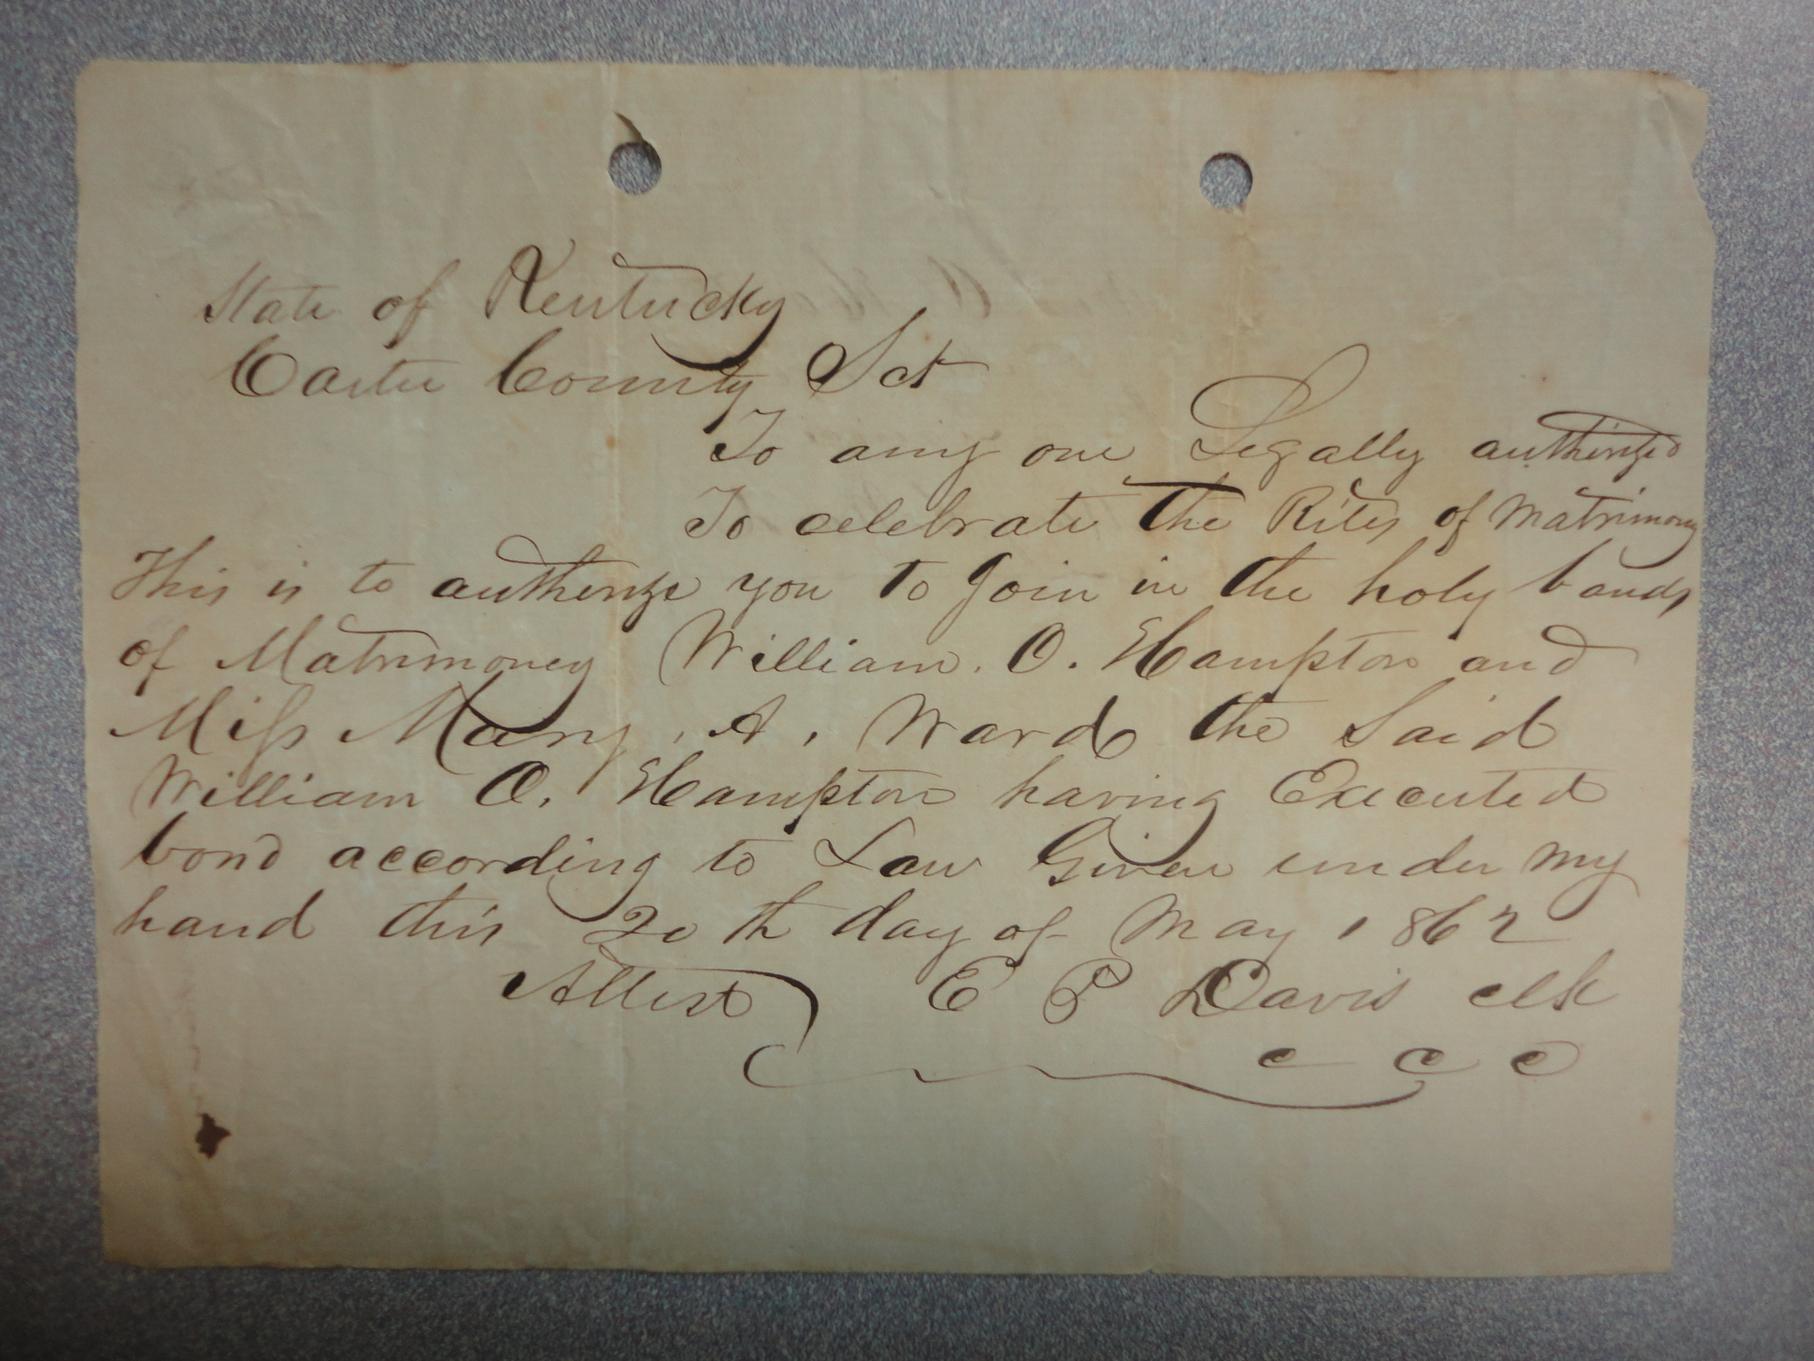 State of Kentucky
Carter County Sct
To any one Legally authorized
To celebrate the Rites of Matrimony
This is to authorize you to Join in the holy bands
of Matrimoney William. O. Hampton and
Miss Mary. A. Ward the Said
William O. Hampton having Executed
bond according to Law Given under my
hand this 20th day of May 1862
Attest E P Davis clk
C C C